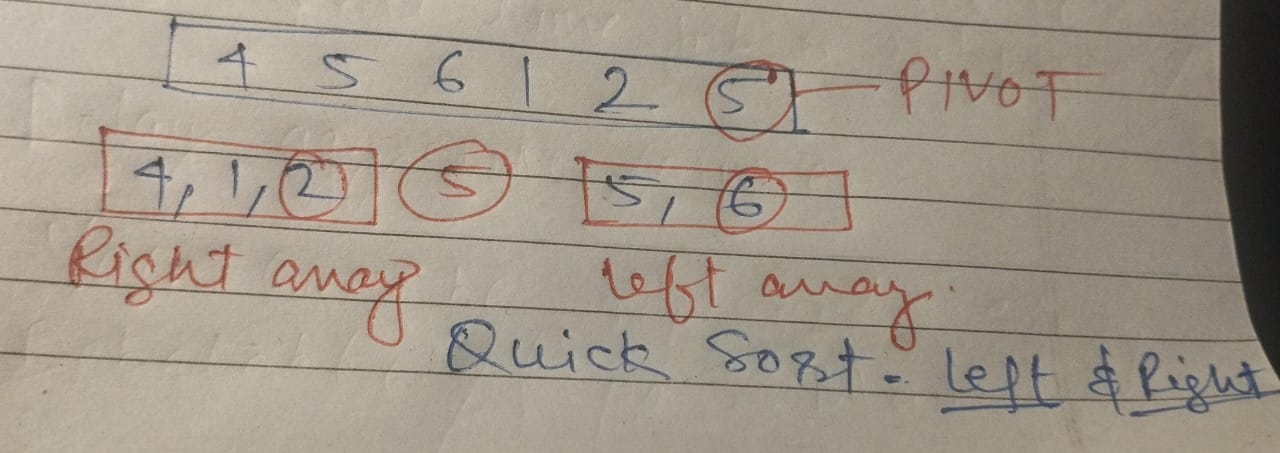 4 5 6 1 2 5 - PIVOT
4, 1, 2 5 5, 6
Right array left array.
Quick Sort - left & Right